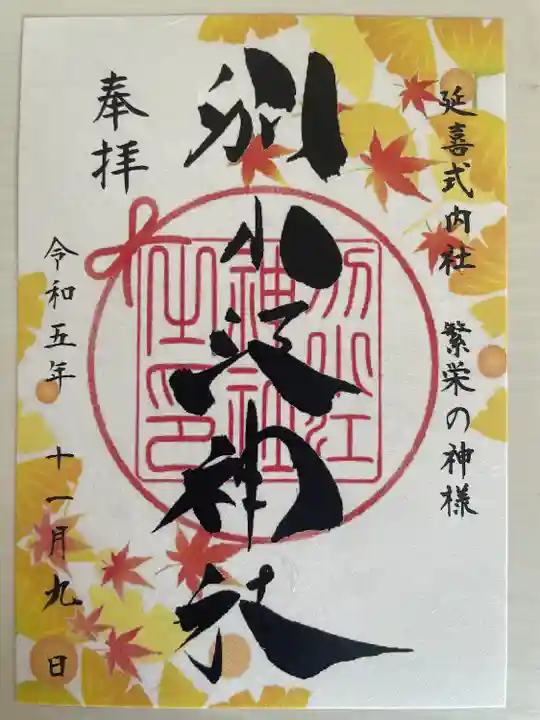 延喜式内社 繁栄の神様
別小江神社
奉拝
令和五年 十一月九日
別小江
神社
之印